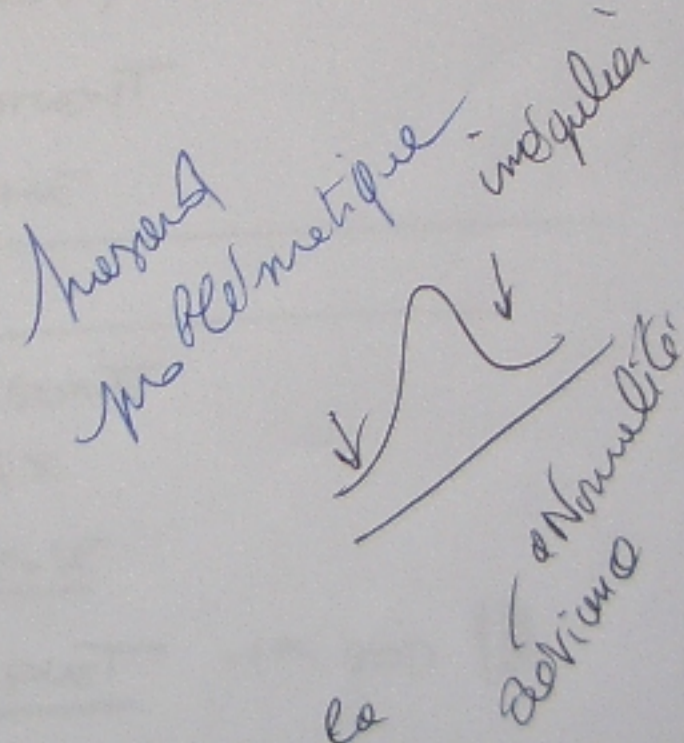 hasard
problématique.
irrégulier
aNormalité
déviance
la